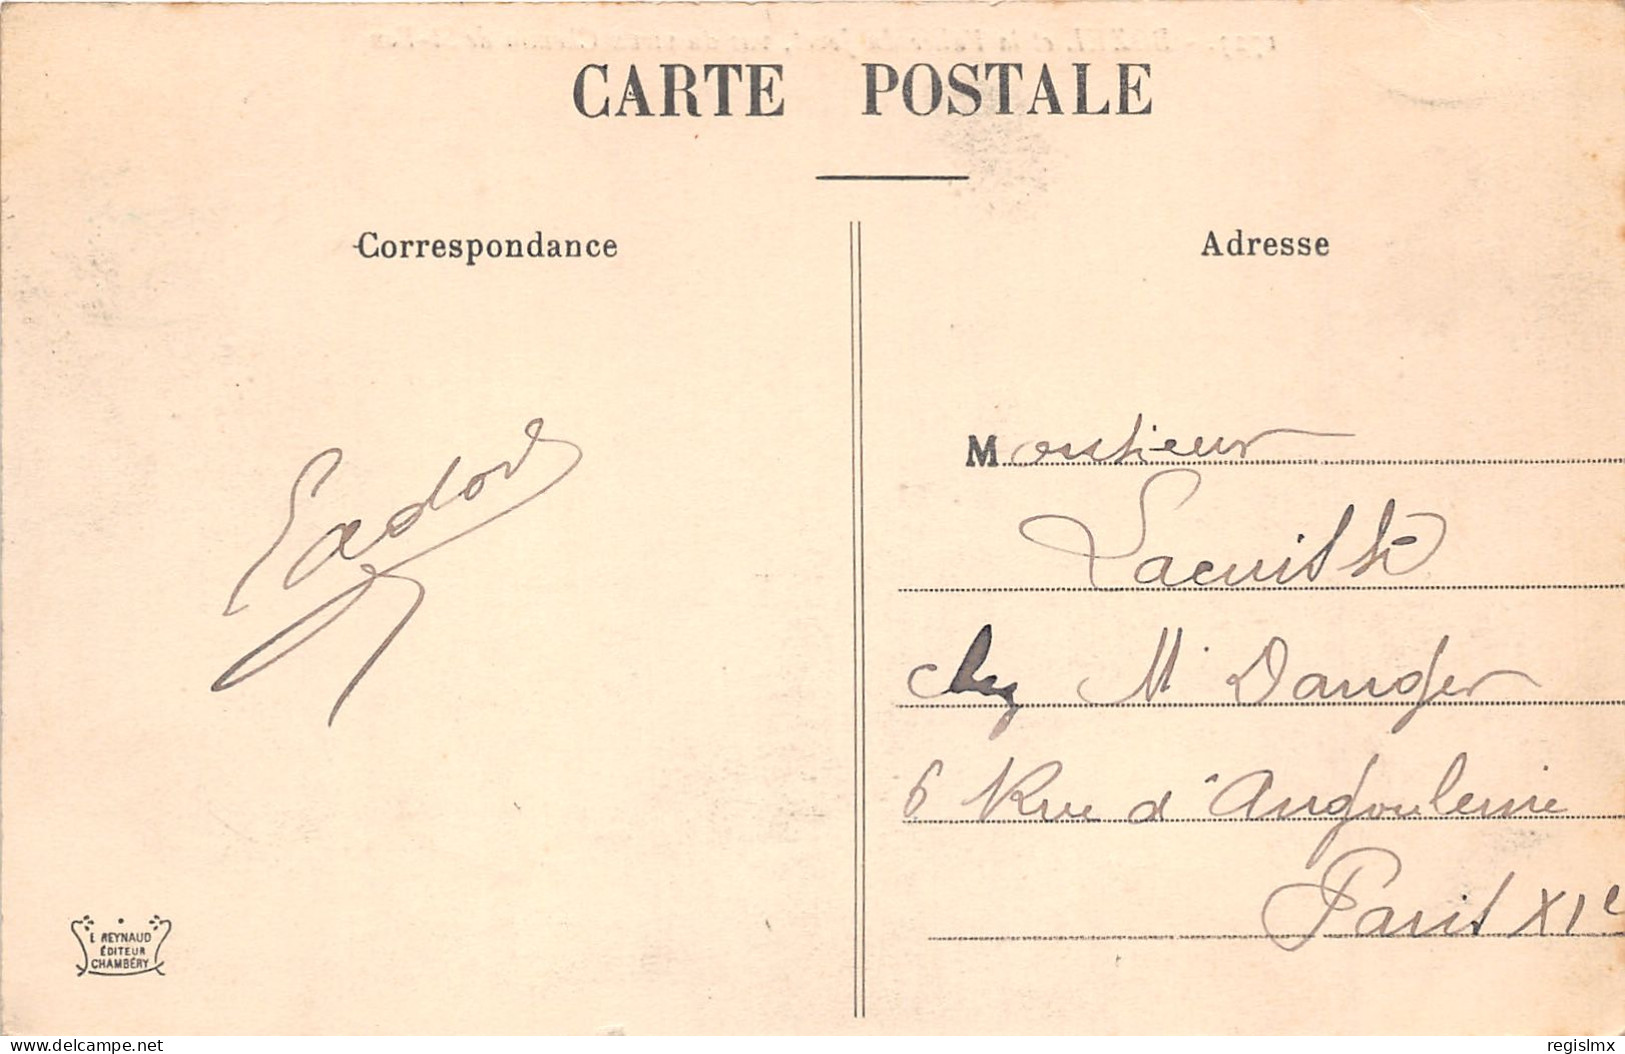 CARTE POSTALE
Correspondance
Adresse
Monsieur
chez Mr Danger
6 Rue d'Angouleme
Paris XIe
L. REYNAUD
ÉDITEUR
CHAMBÉRY
delcampe.net
regislmx